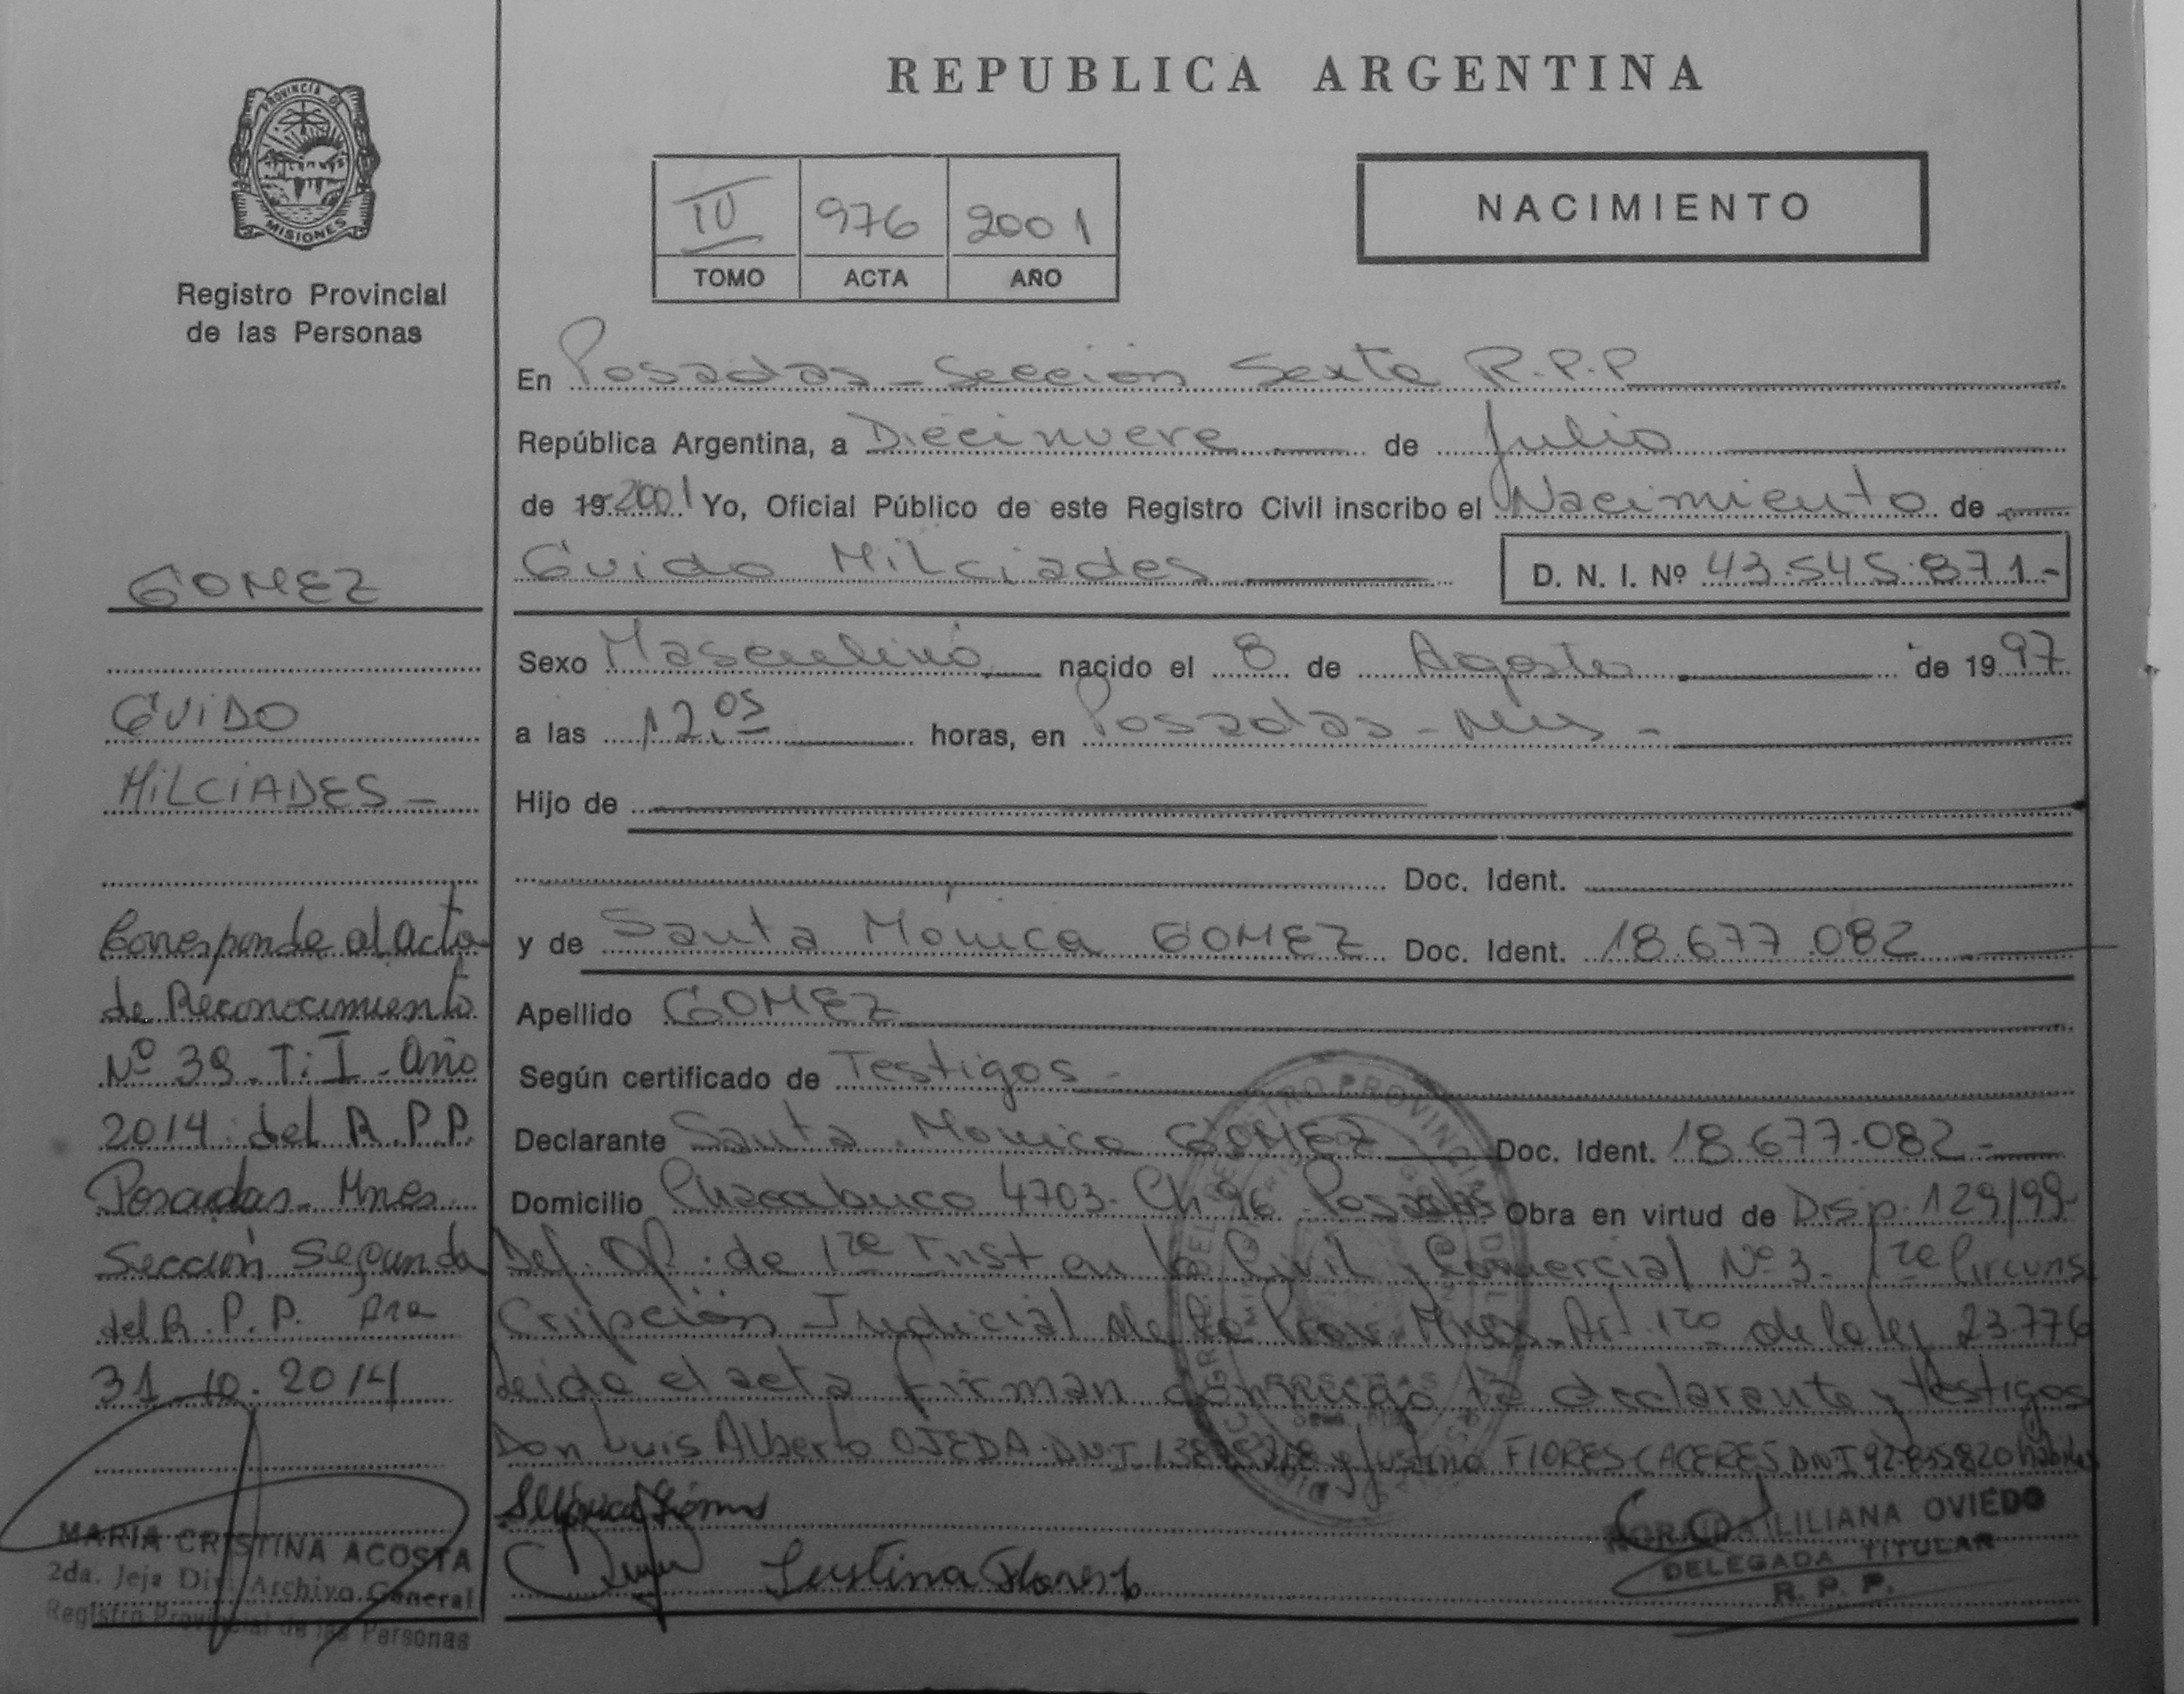 PROVINCIA DE
MISIONES
Registro Provincial
de las Personas
GOMEZ
GUIDO
MILCIADES -
Corresponde al acta
de Reconocimiento
Nº 39. T: I - Año
2014 del R.P.P.
Posadas - Mnes.
Sección Segunda
del R.P.P.
31.10.2014
MARIA CRISTINA ACOSTA
2da. Jefa Div. Archivo General
Registro Provincial de las Personas
REPUBLICA ARGENTINA
IV 976 2001
TOMO ACTA AÑO
NACIMIENTO
En Posadas - Sección Sexta R.P.P
República Argentina, a Diecinueve de Julio
de 19 2001 Yo, Oficial Público de este Registro Civil inscribo el Nacimiento de
Guido Milciades D. N. I. Nº 43.545.871-
Sexo Masculino nacido el 8 de Agosto de 19 97
a las 12.05 horas, en Posadas - Mis -
Hijo de
Doc. Ident.
y de Santa Mónica GOMEZ Doc. Ident. 18.677.082
Apellido GOMEZ
Según certificado de Testigos -
Declarante Santa Monica GOMEZ Doc. Ident. 18.677.082 -
Domicilio Chacabuco 4703 - Ch 96 - Posadas Obra en virtud de Disp. 129/99-
Def. Of. de 1ra Inst en lo Civil y Comercial Nº 3 - 1ra Circuns
cripción Judicial de la Prov. Mnes. Art. 1ro de la ley 23.776
Leida el acta firman conmigo la declarante y testigos
Don Luis Alberto OJEDA DNI. y Justina FLORES CACERES DNI 92.835820 habiles
Justina Flores
LILIANA OVIEDO
DELEGADA TITULAR
R. P. P.